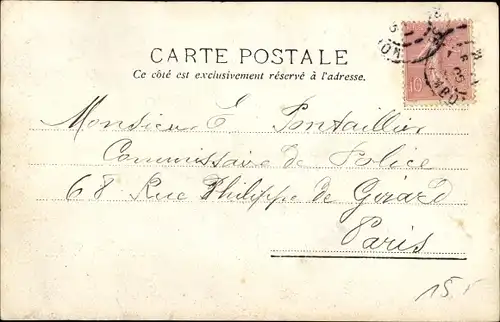 CARTE POSTALE
Ce côté est exclusivement réservé à l'adresse.
Monsieur E. Pontaillier
Commissaire de Police
68 Rue Philippe de Girard
Paris
15